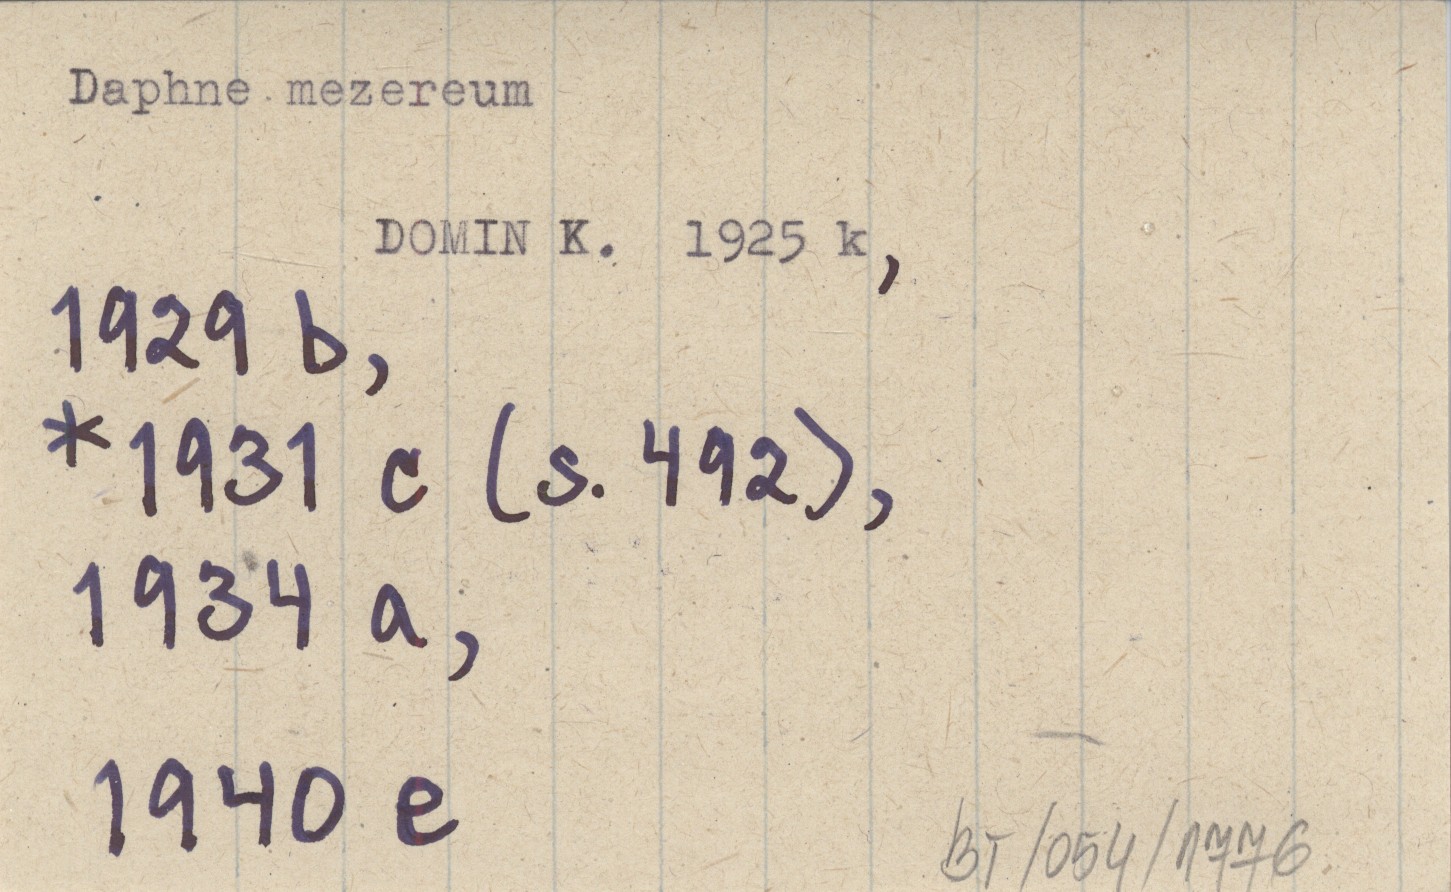 Daphne mezereum
DOMIN K. 1925 k,
1929 b,
*1931 c (s. 492),
1934 a,
1940 e
BT/054/1776